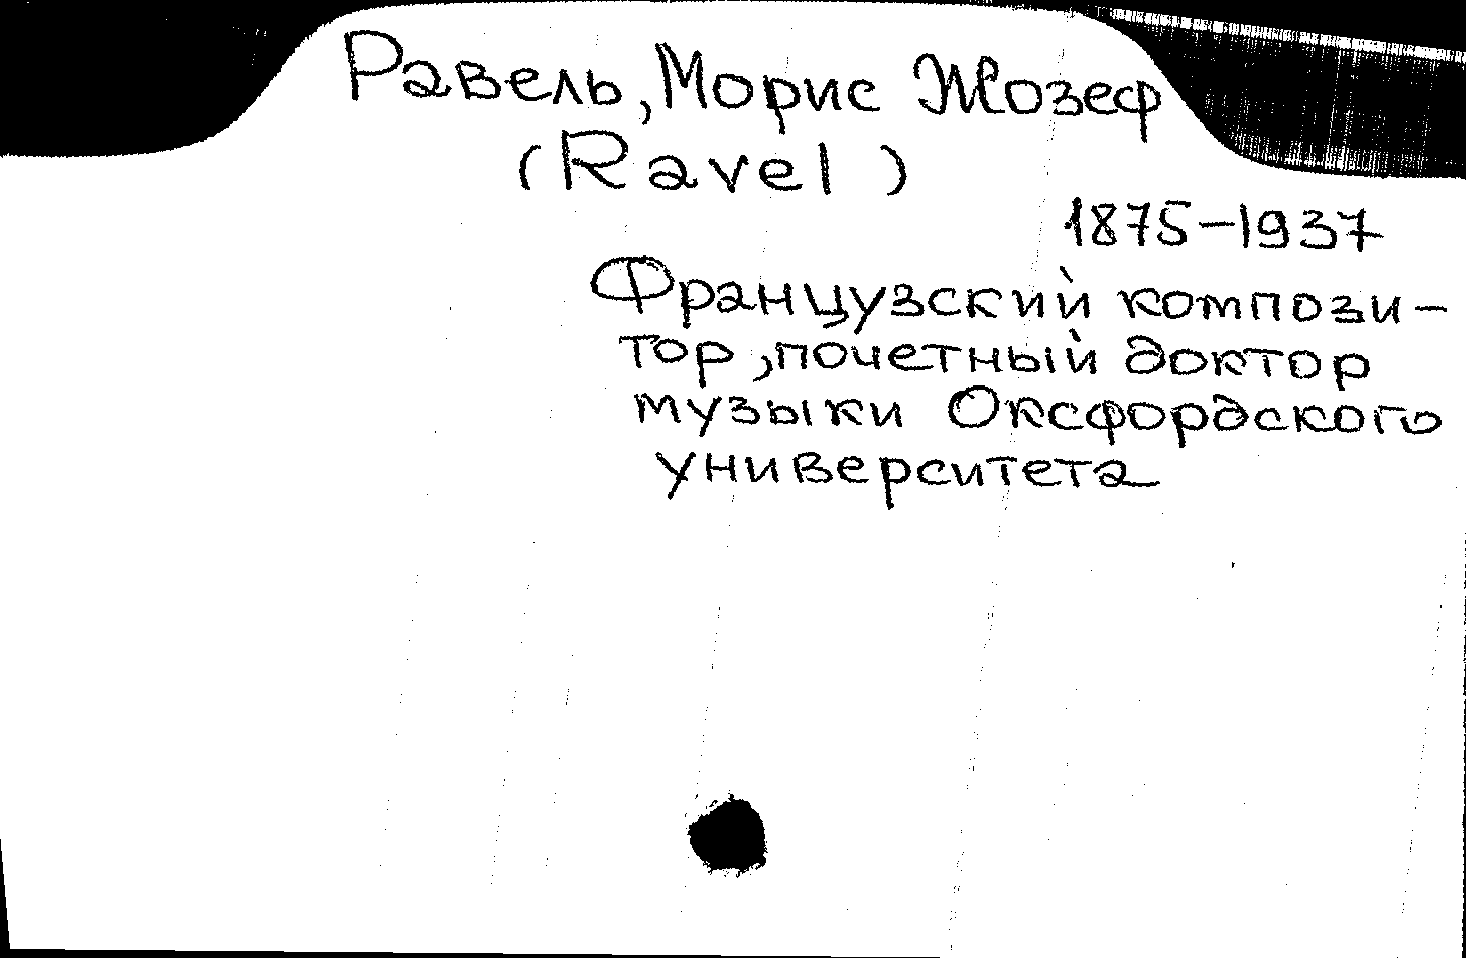 Равель, Морис Жозеф
(Ravel)
1875-1937
Французский компози-
тор, почетный доктор
музыки Оксфордского
университета